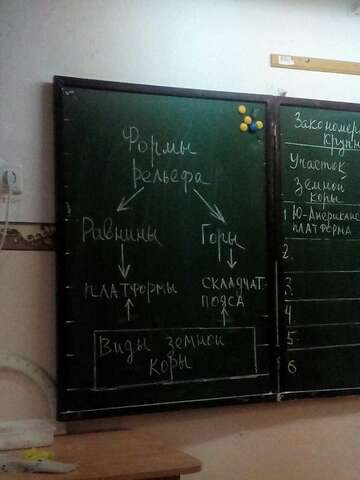 Формы
рельефа
Равнины
Горы
ПЛАТФОРМЫ
СКЛАДЧАТ.
ПОЯСА
Виды земной
коры
Участок
земной
коры
1 Ю-Американс
ПЛАТФОРМА
2.
3.
4.
5.
6